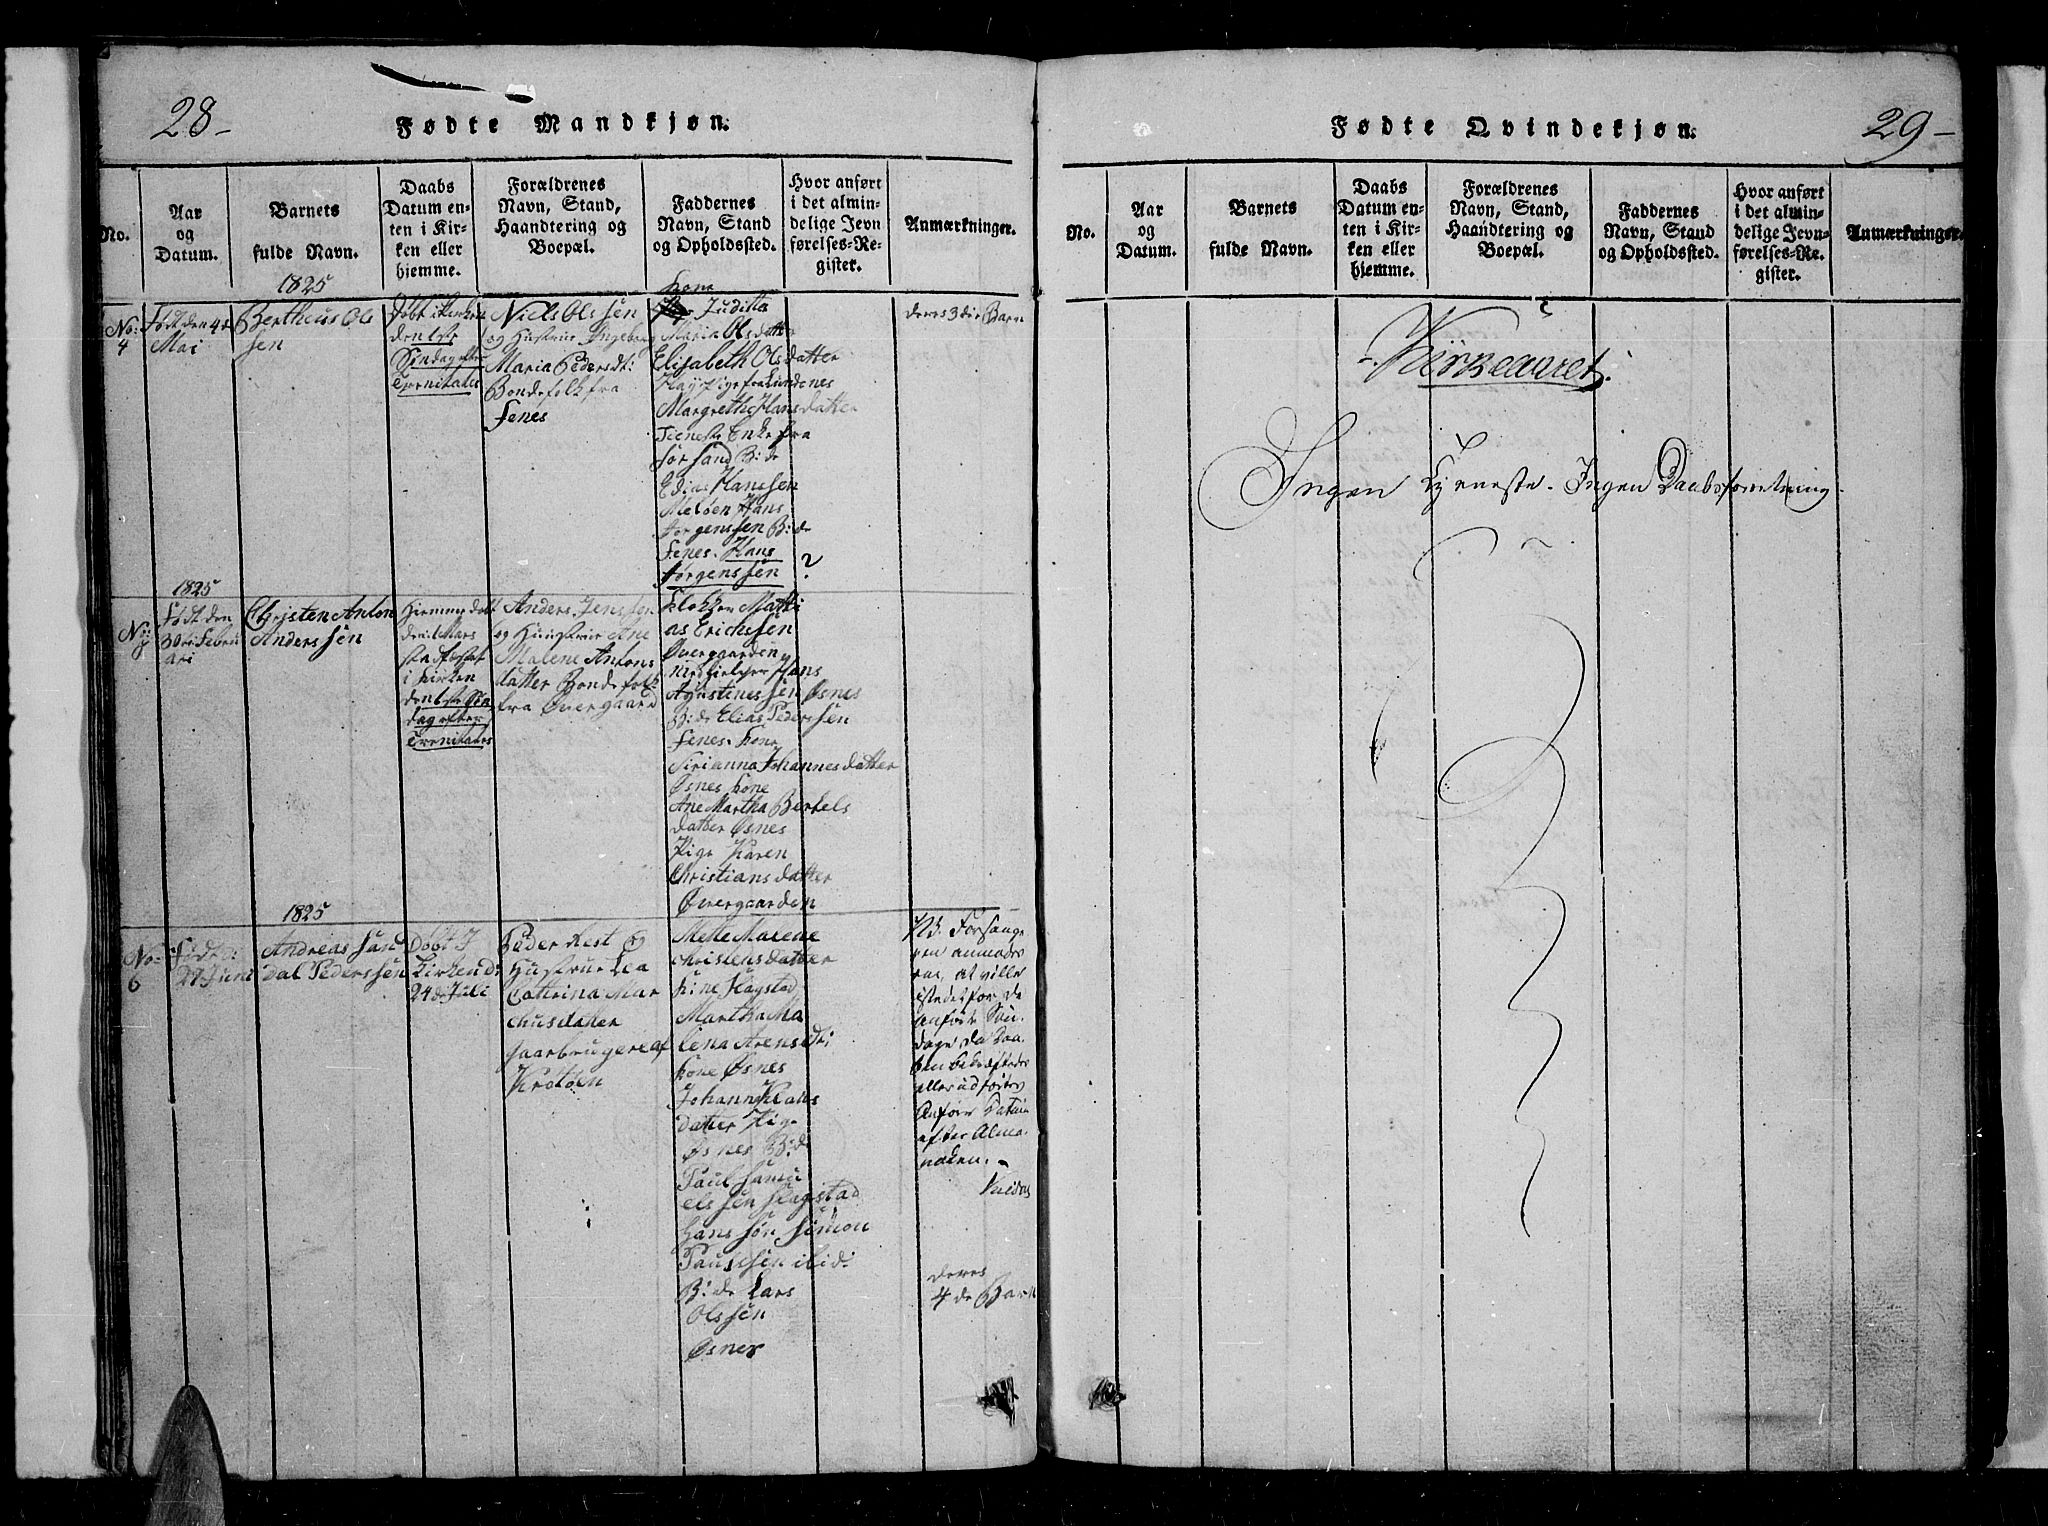 28-
Fødte Mandkjøn.
No.
Aar
og
Datum.
Barnets
fulde Navn.
Daabs
Datum en-
ten i Kir-
ken eller
hjemme.
Forældrenes
Navn, Stand,
Haandtering og
Boepæl.
Faddernes
Navn, Stand
og Opholdssted.
Hvor anført
i det almin-
delige Jevn
førelses-Re-
gister.
Anmærkninger.
1825
No:
4
Født den 4de
Mai
Bertheus Ols
sen
Døbt i Kirken
den 1ste
Søndag efter
Trenitatis
Niels Olssen
og Hustrue Ingeborg
Maria Pedersdt:
Bondefolk fra
Fenes
kone
Juditta
Maria Olsdatter
Elisabeth Olsdatter
Pige fra Lundenes
Margrethe Hansdatter
Tieneste Enke fra
Sørsand B: de
Edias Hanssen
Meløen Hans
Jørgenssen B: de
Fenes. Hans
Jørgenssen ?
deres 3die Barn
1825
No:
Født den
30te Febru
ari
Christen Anton
Anderssen
Hiemme døbt
den 1 Mars
stadfæstet
i kirken
den 1ste Søn
dag efter
Trenitates
Anders Jenssen
og Hustrue Ane
Malene Antons
datter Bondefolk
fra Øvergaard
Klokker Matti
as Erichssen
Øvergaarden
Medhielper Hans
Agustinessen Øsnes
B: de Elias Pederssen
Fenes. kone
Sirianna Johannesdatter
Øsnes kone
Ane Martha Bertels
datter Øsnes
Pige Karen
Christiansdatter
Øvergaarden
1825
No:
6
Født d:
27 Juni
Andreas San
dal Pederssen
Døbt I
Kirken d:
24de Juli
Peder Rest og
Hustrue Lea
Cathrina Mar
chusdatter
Jaarbrugere af
Krotøen
Mette Marene
christensdatter
kone Flagstad
Martha Ma
lena Arensdt:
kone Øsnes
Johanna Klaus
datter Pige
Øsnes B: de
Paul Samu
elssen Flagstad
Hans søn Simon
Paulssen ibid:
B: de Lars
Olssen
Øsnes
NB. Forsange
ren anmodes
om, at ville
istedetfor de
anførte Søn-
dage, da Daa-
ben bekræftedes
eller udførtes
Anføre Datum
efter Alma-
naken. -
deres
4de Barn
29-
Fødte Qvindekjøn.
No.
Aar
og
Datum.
Barnets
fulde Navn.
Daabs
Datum en-
ten i Kir-
ken eller
hjemme.
Forældrenes
Navn, Stand,
Haandtering og
Boepæl.
Faddernes
Navn, Stand
og Opholdssted.
Hvor anført
i det almin-
delige Jevn-
førelses-Re-
gister.
Anmærkninger.
Kirkeauret.
Ingen Tjeneste. Ingen Daabsforretning.